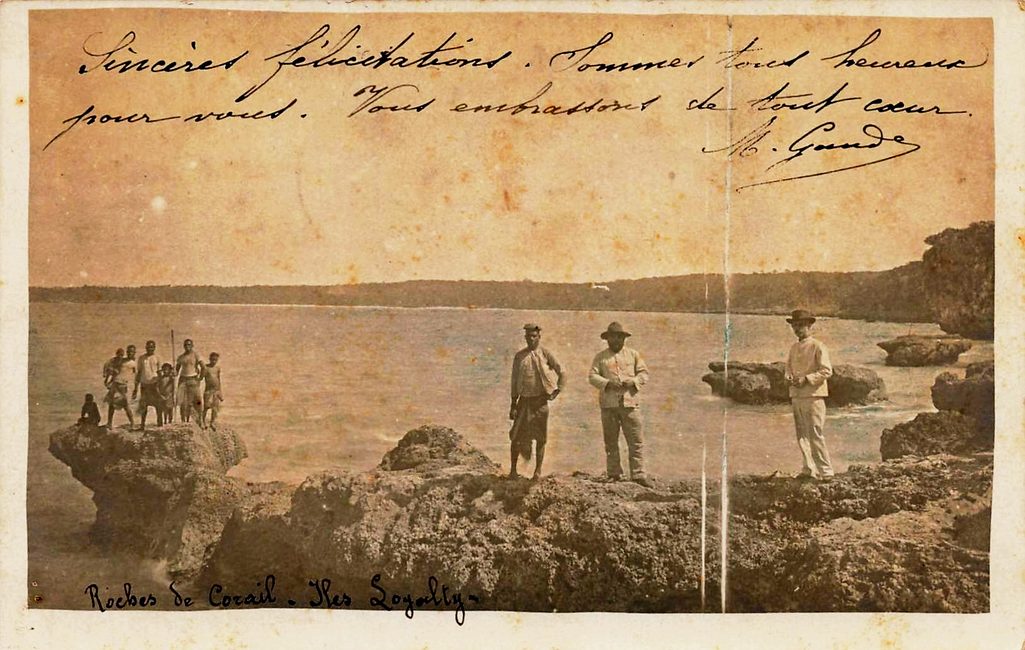 Sincères félicitations. Sommes tous heureux
pour vous. Vous embrassons de tout cœur.
M. Gande
Roches de Corail - Iles Loyalty -